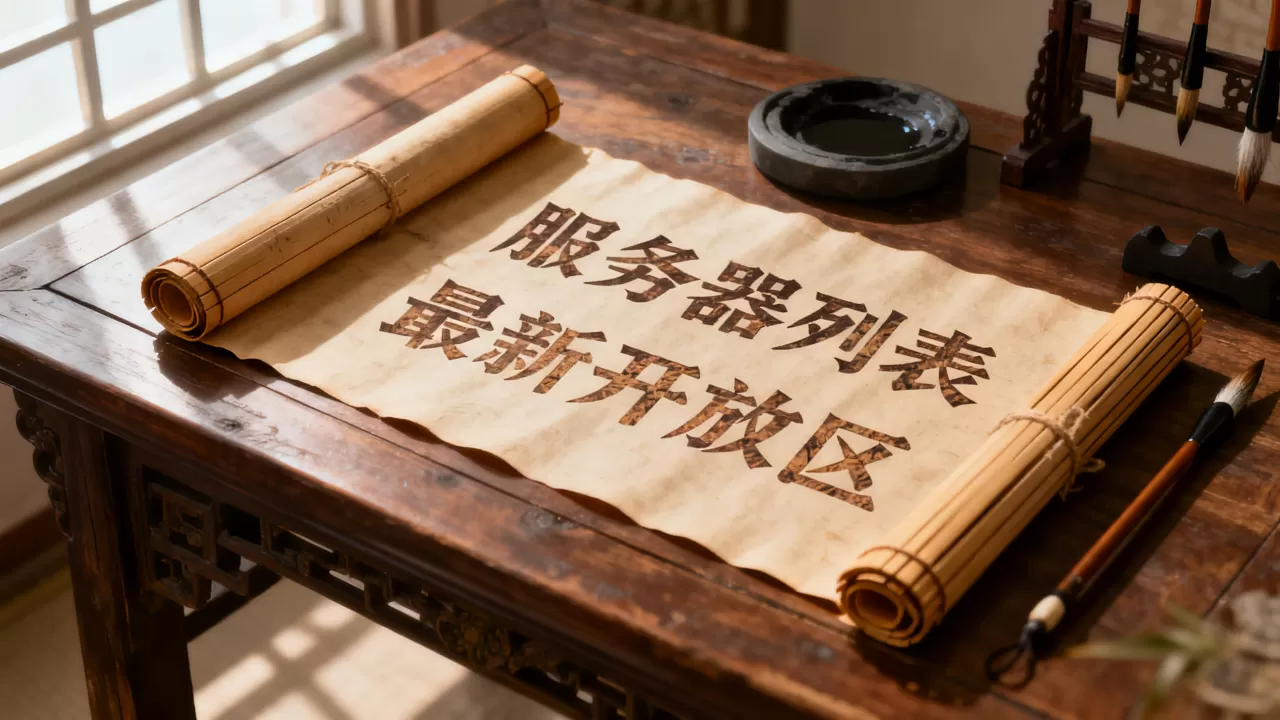 服务器列表
最新开放区